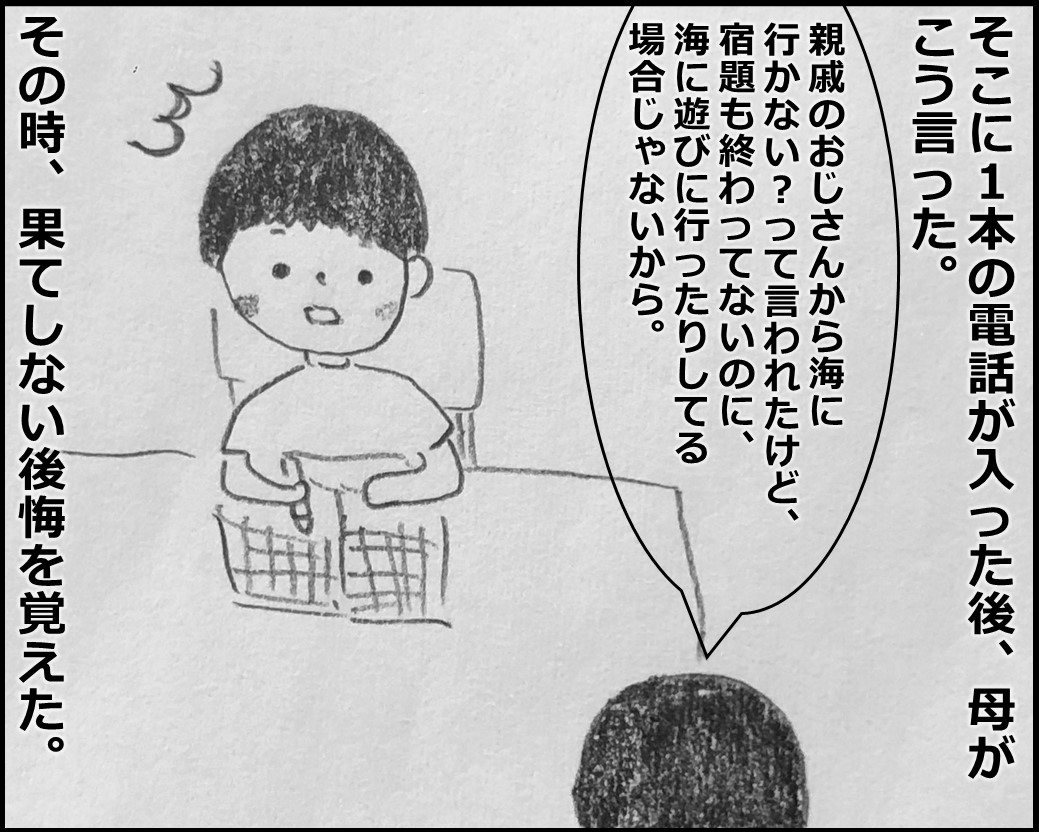 そこに1本の電話が入った後、母が
こう言った。
親戚のおじさんから海に
行かない？って言われたけど、
宿題も終わってないのに、
海に遊びに行ったりしてる
場合じゃないから。
その時、果てしない後悔を覚えた。